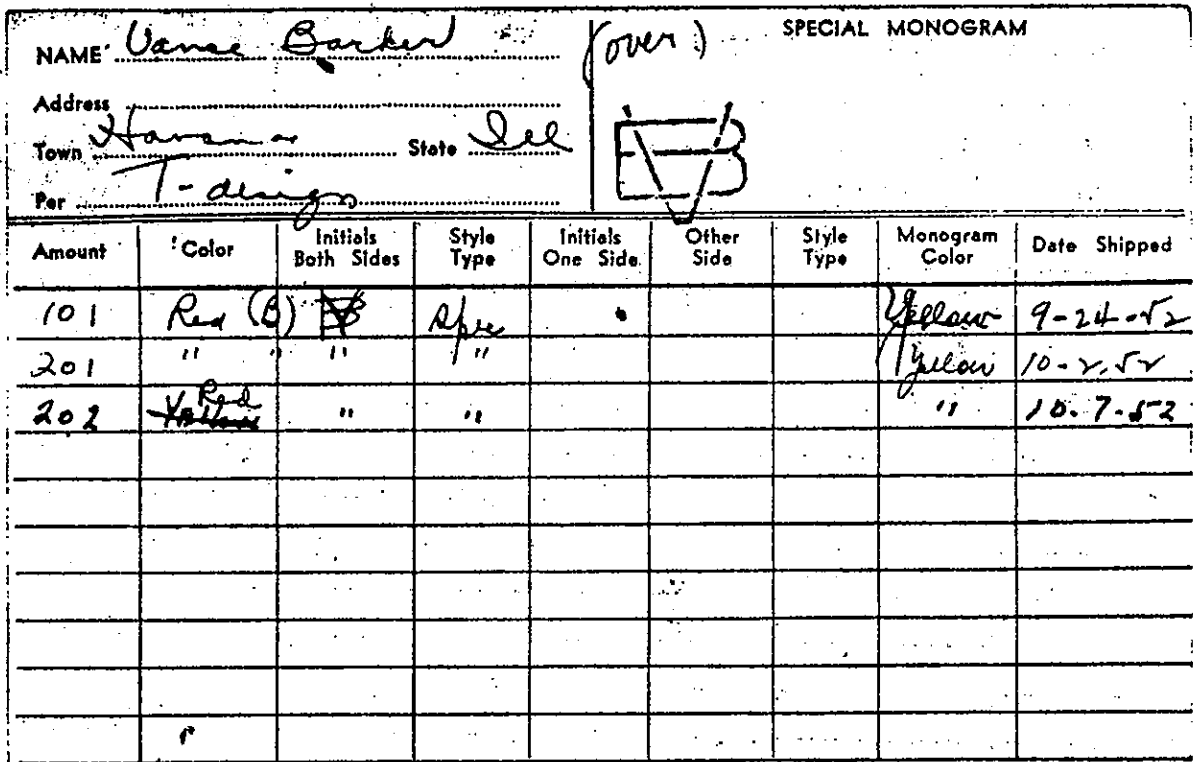 NAME Vance Barker (over) SPECIAL MONOGRAM
Address
Town Havana State Ill
Per T-design
VB
Amount Color Initials Both Sides Style Type Initials One Side Other Side Style Type Monogram Color Date Shipped
101 Red (B) VB Spec Yellow 9-24-52
201 " " " " Yellow 10-2-52
202 Red " " " 10-7-52